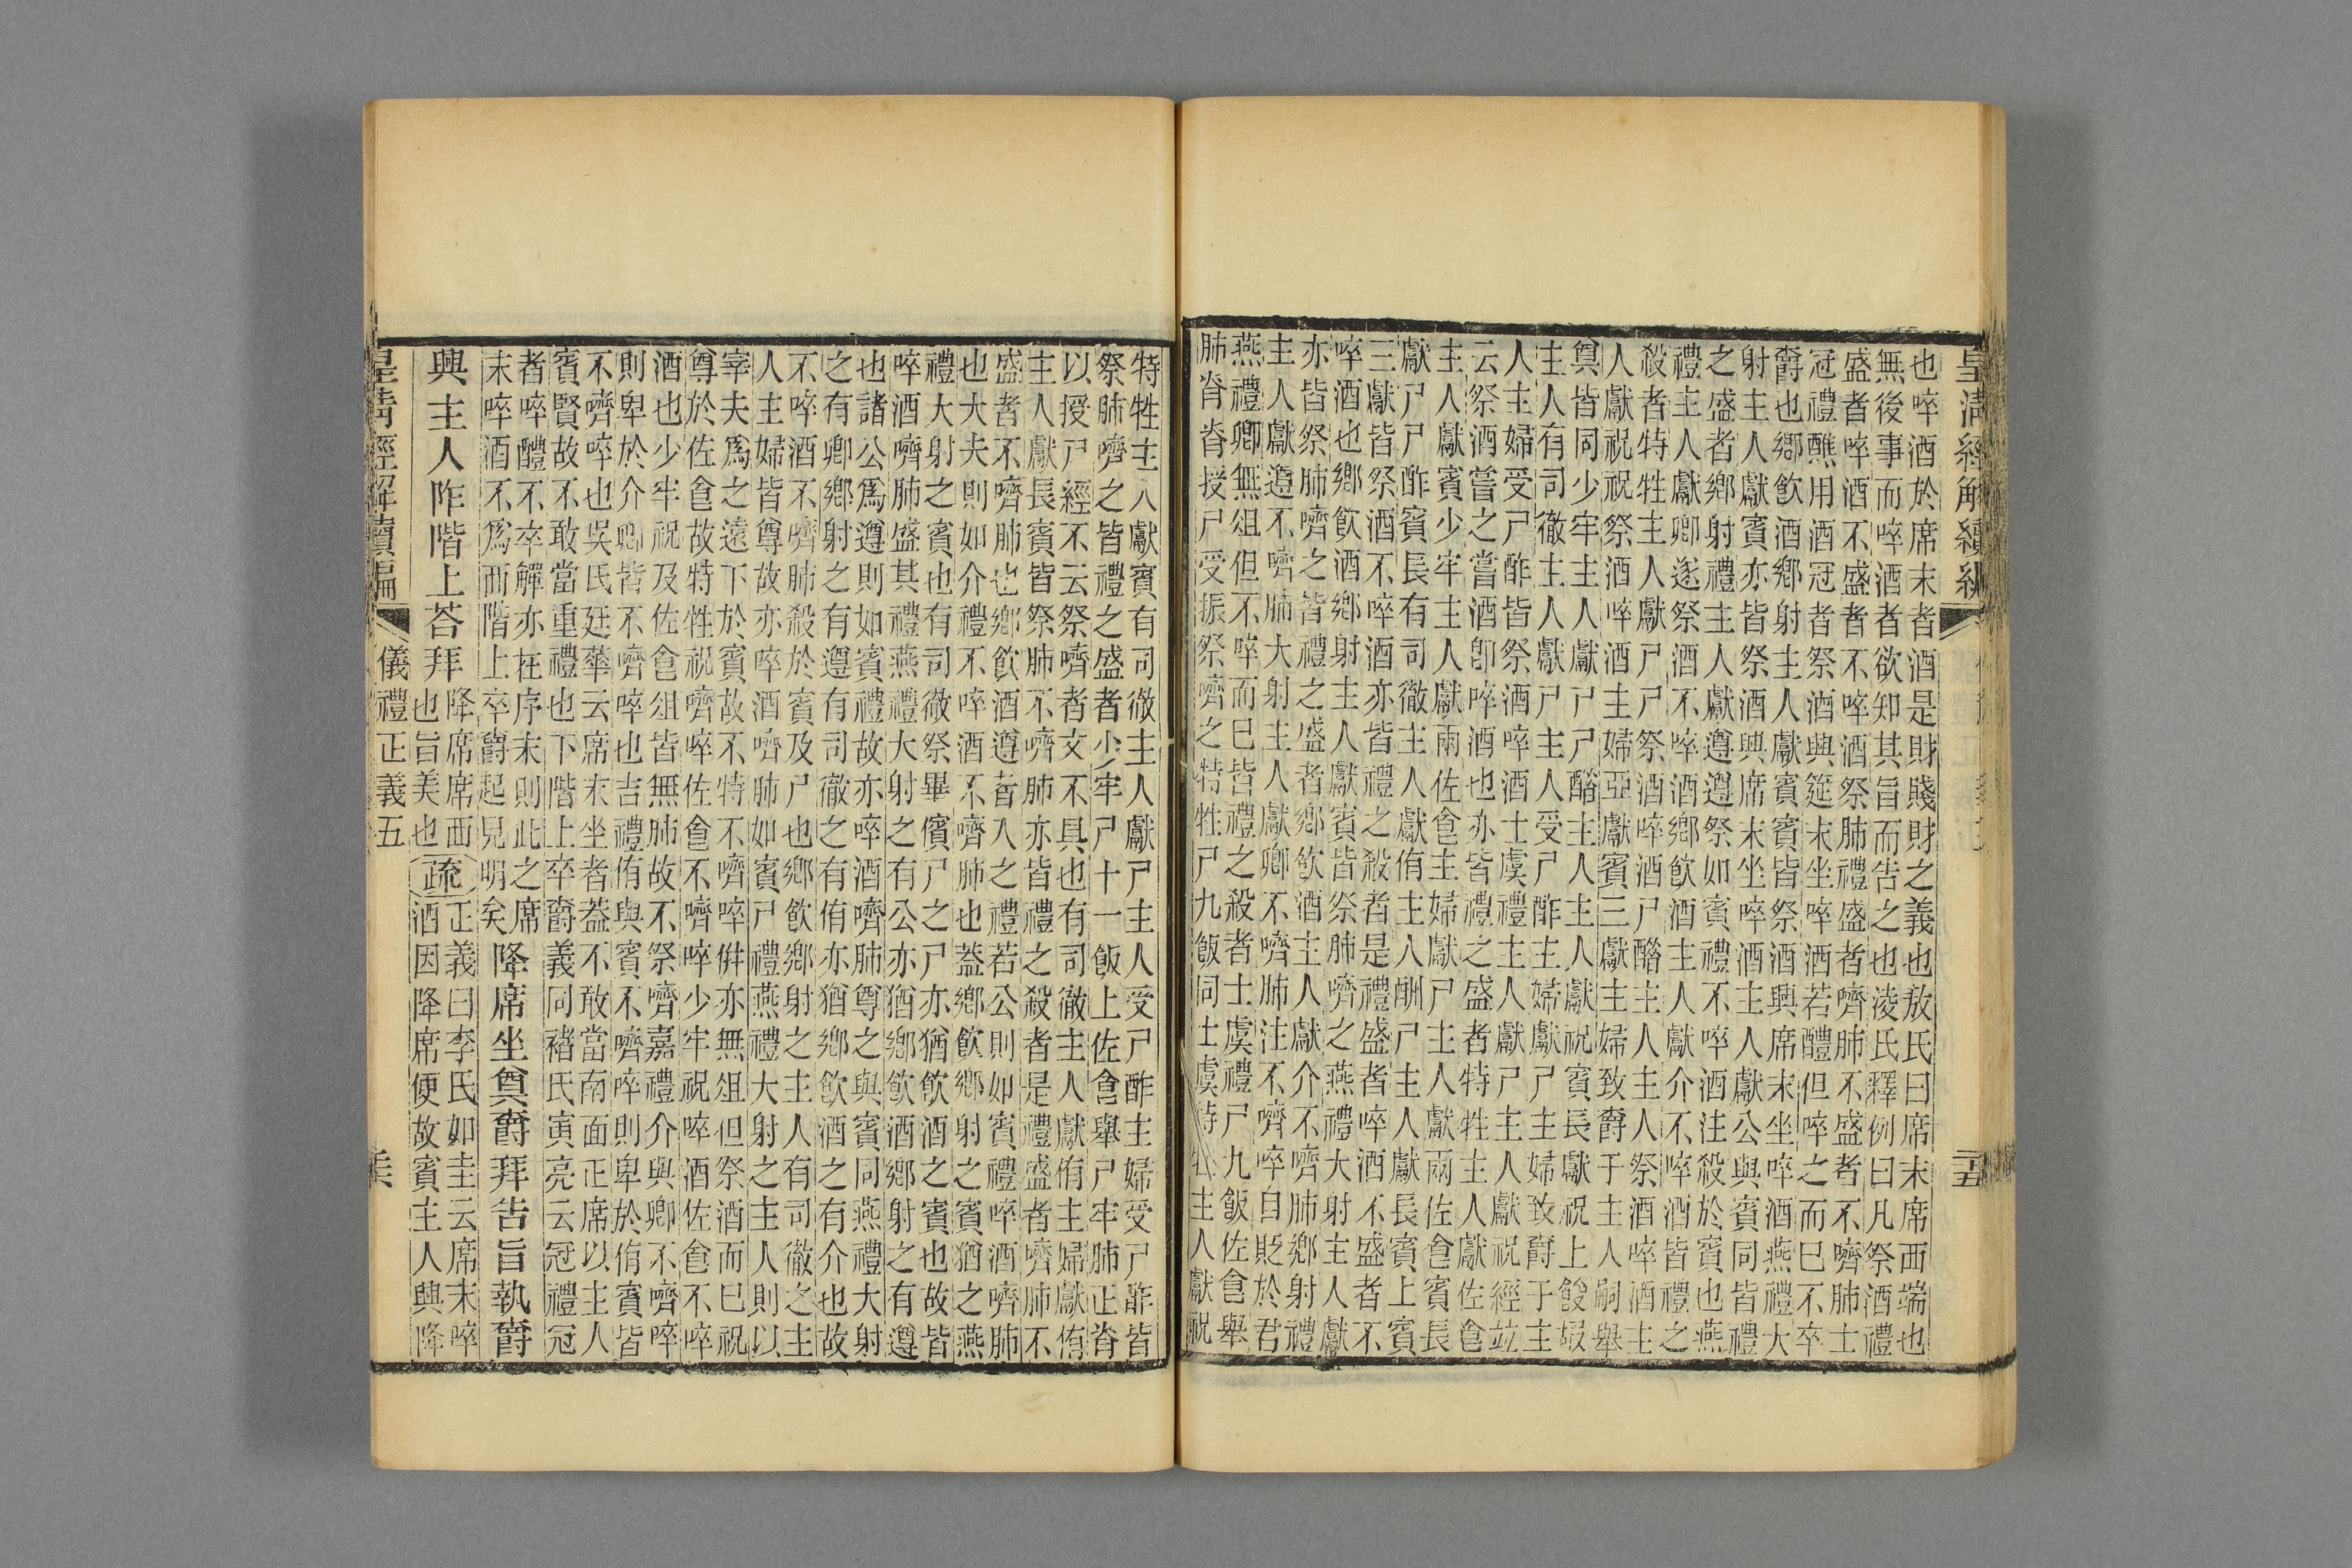 皇清經解續編
也啐酒於席末者酒是財賤財之義也敖氏曰席末席西端也
無後事而啐酒者欲知其旨而告之也淩氏釋例曰凡祭酒禮
盛者啐酒不盛者不啐酒祭肺禮盛者嚌肺不盛者不嚌肺士
冠禮醮用酒冠者祭酒興筵末坐啐酒若醴但啐之而已不卒
爵也鄉飲酒鄉射主人獻賓賓皆祭酒興席末坐啐酒燕禮大
射主人獻賓亦皆祭酒興席末坐啐酒主人獻公與賓同皆禮
之盛者鄉射禮主人獻遵遵祭如賓禮不啐酒注殺於賓也燕
禮主人獻卿遂祭酒不啐酒鄉飲酒主人獻介不啐酒皆禮之
殺者特牲主人獻尸尸祭酒啐酒尸醋主人主人祭酒啐酒主
人獻祝祝祭酒啐酒主婦亞獻賓三獻主婦致爵于主人嗣舉
奠皆同少牢主人獻尸尸醋主人主人獻祝賓長獻祝上餕嘏
主人有司徹主人獻尸主人受尸酢主婦獻尸主婦致爵于主
人主婦受尸酢皆祭酒啐酒士虞禮主人獻尸主人獻祝經竝
云祭酒嘗之嘗酒卽啐酒也亦皆禮之盛者特牲主人獻佐食
主人獻賓少牢主人獻兩佐食主婦獻尸主人獻兩佐食賓長
獻尸尸酢賓長有司徹主人獻侑主人酬尸主人獻長賓上賓
三獻皆祭酒不啐酒亦皆禮之殺者是禮盛者啐酒不盛者不
啐酒也鄉飲酒鄉射主人獻賓皆祭肺嚌之燕禮大射主人獻
亦皆祭肺嚌之皆禮之盛者鄉飲酒主人獻介不嚌肺鄉射禮
主人獻遵不嚌肺大射主人獻卿不嚌肺注不嚌啐自貶於君
燕禮卿無俎但不啐而已皆禮之殺者士虞禮尸九飯佐食舉
肺脊授尸受振祭嚌之特牲尸九飯同士虞特牲主人獻祝
特牲主人獻賓有司徹主人獻尸主人受尸酢主婦受尸酢皆
祭肺嚌之皆禮之盛者少牢尸十一飯上佐食舉尸牢肺正脊
以授尸經不云祭嚌者文不具也有司徹主人獻侑主婦獻侑
主人獻長賓皆祭肺不嚌肺亦皆禮之殺者是禮盛者嚌肺不
盛者不嚌肺也鄉飲酒遵者入之禮若公則如賓禮啐酒嚌肺
也大夫則如介禮不啐酒不嚌肺也蓋鄉飲鄉射之賓猶之燕
禮大射之賓也有司徹祭畢儐尸之尸亦猶飲酒之賓也故皆
啐酒嚌肺盛其禮燕禮大射之有公亦猶鄉飲酒鄉射之有遵
也諸公爲遵則如賓禮故亦啐酒嚌肺尊之與賓同燕禮大射
之有卿鄉射之有遵有司徹之有侑亦猶鄉飲酒之有介也故
不啐酒不嚌肺殺於賓及尸也鄉飲鄉射之主人有司徹之主
人主婦皆尊故亦啐酒嚌肺如賓尸禮燕禮大射之主人則以
宰夫爲之遠下於賓故不特不嚌啐倂亦無俎但祭酒而已祝
尊於佐食故特牲祝嚌啐佐食不嚌啐少牢祝啐酒佐食不啐
酒也少牢祝及佐食俎皆無肺故不祭嚌嘉禮介與卿不嚌啐
則卑於介卿皆不嚌啐也吉禮侑與賓不嚌啐則卑於侑賓皆
不嚌啐也吳氏廷華云席末坐者蓋不敢當南面正席以主人
賓賢故不敢當重禮也下階上卒爵義同褚氏寅亮云冠禮冠
者啐醴不卒觶亦在序末則此之席
末啐酒不爲而階上卒爵起見明矣降席坐奠爵拜告旨執爵
興主人阼階上荅拜降席席西也旨美也疏正義曰李氏如圭云席末啐酒因降席便故賓主人興降
皇清經解續編
儀禮正義五